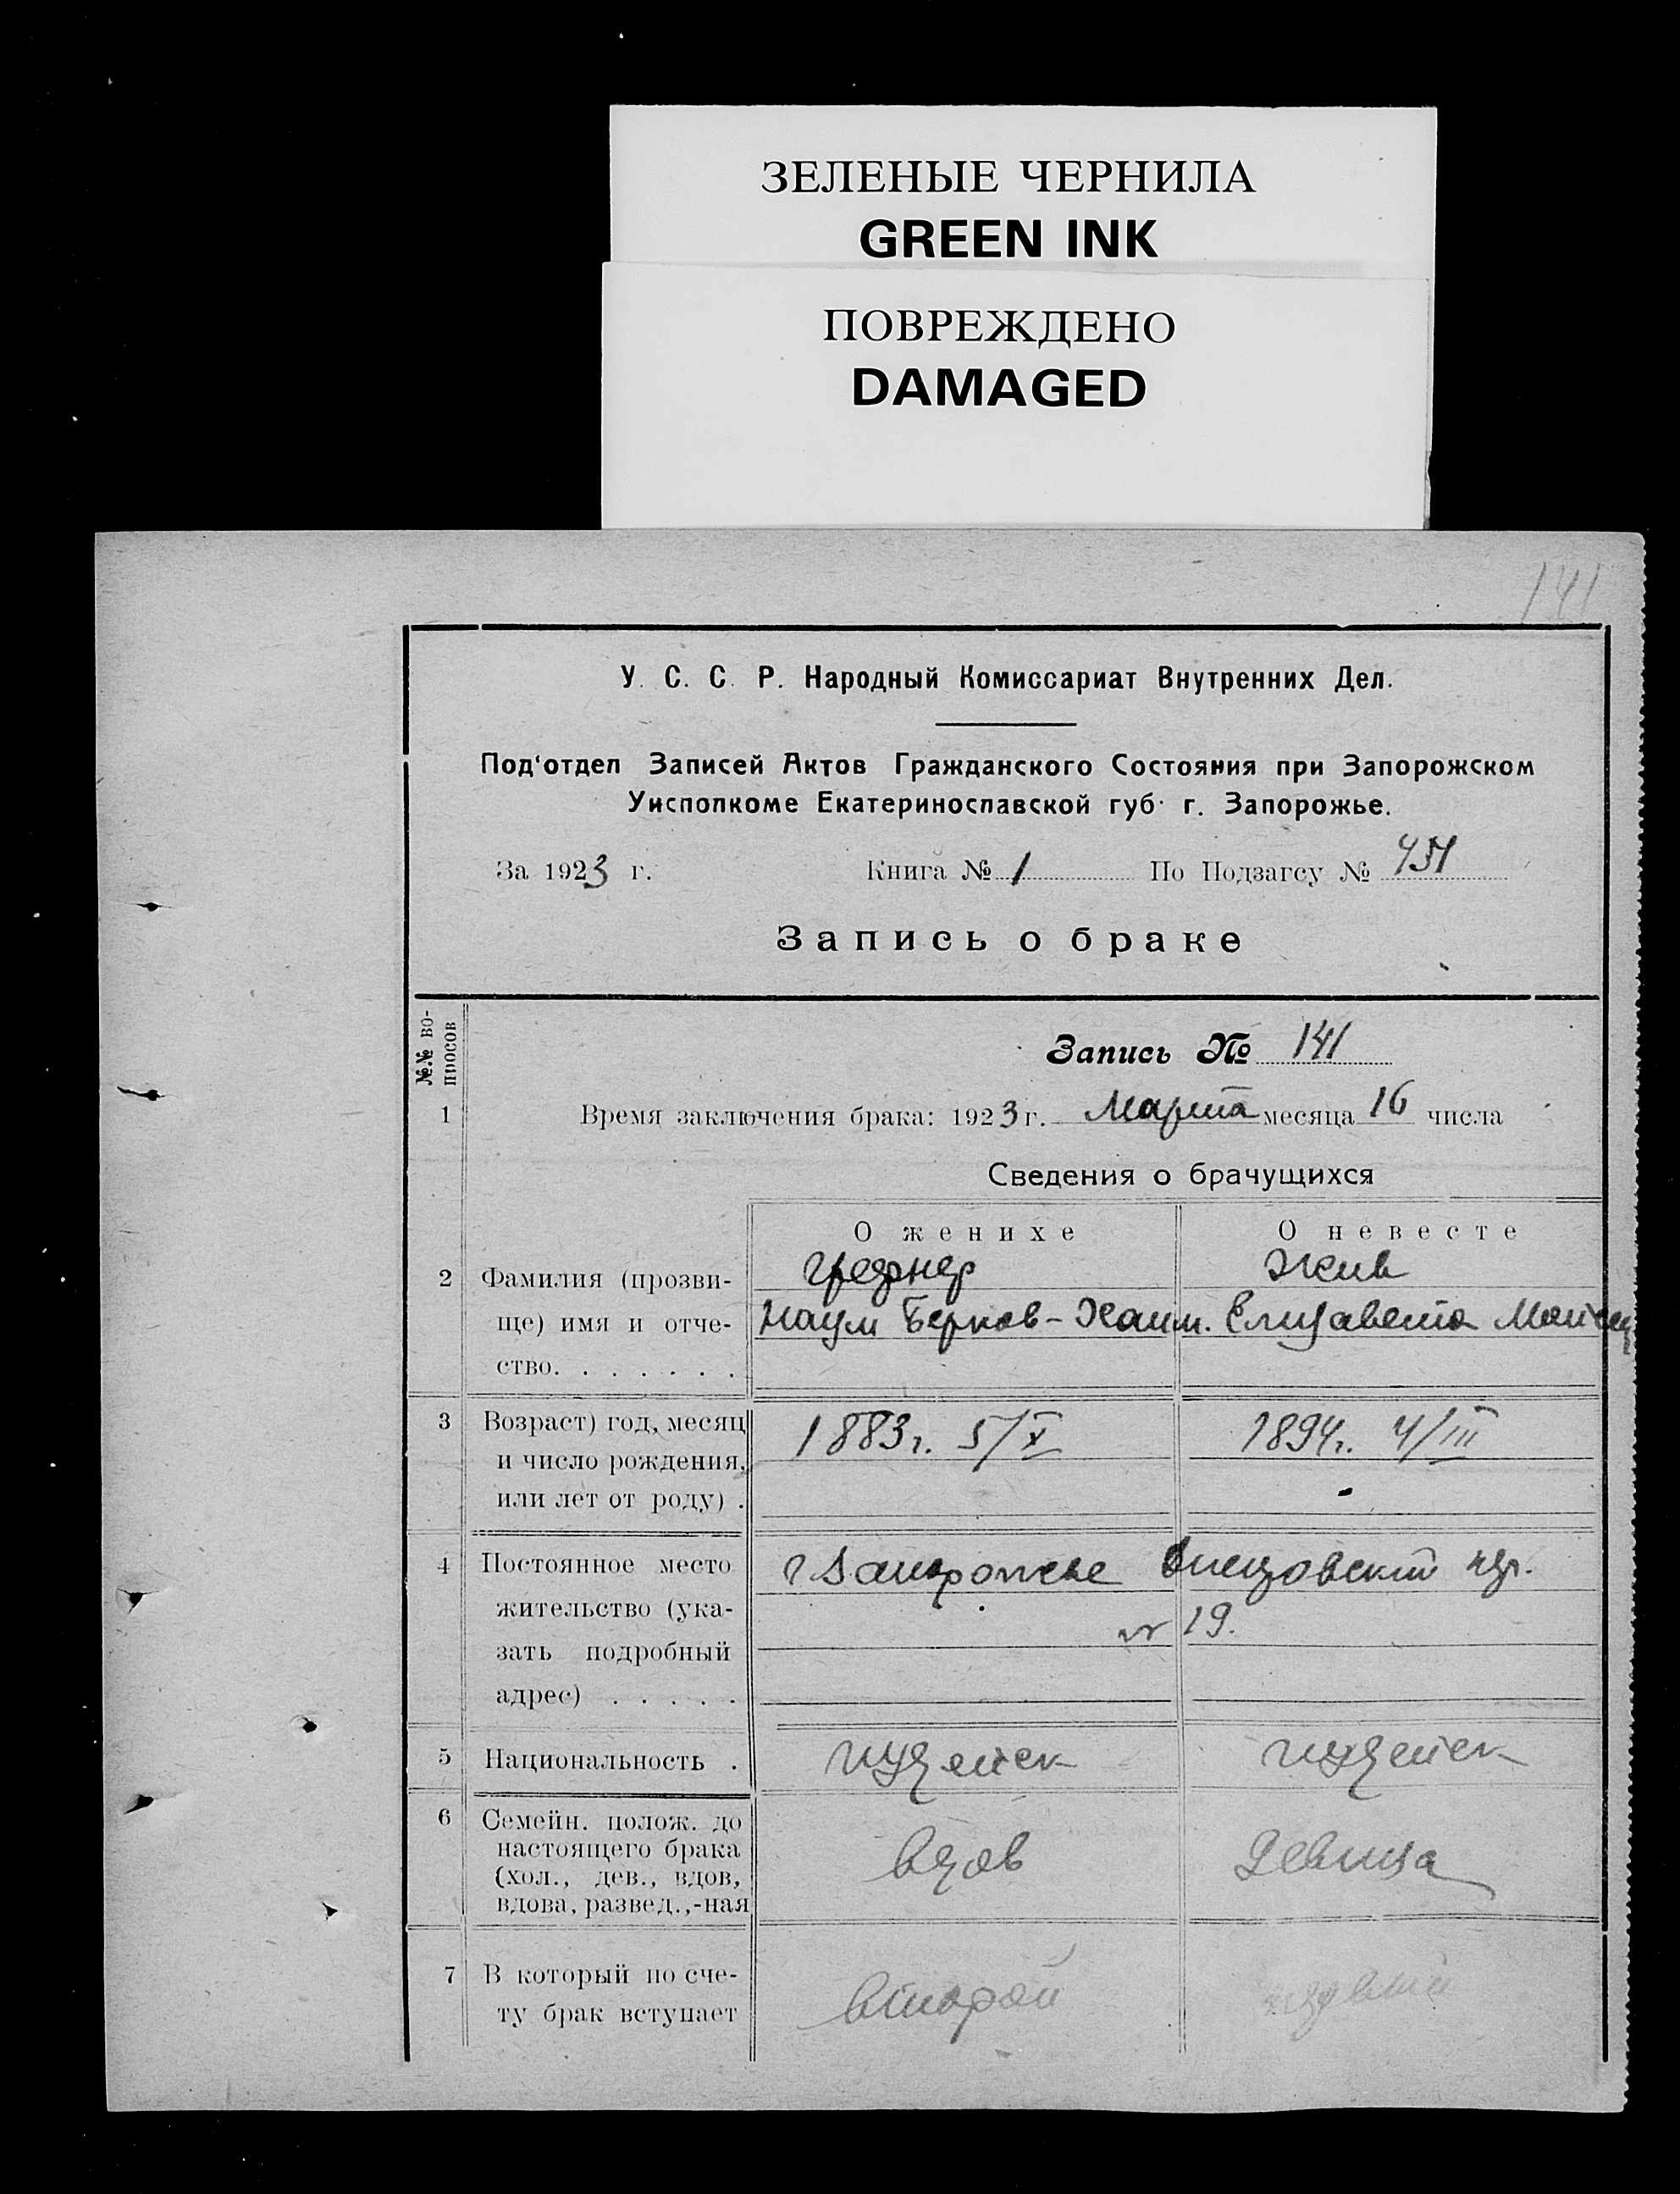 ЗЕЛЕНЫЕ ЧЕРНИЛА
GREEN INK
ПОВРЕЖДЕНО
DAMAGED
141
У. С. С. Р. Народный Комиссариат Внутренних Дел.
Под'отдел Записей Актов Гражданского Состояния при Запорожском
Уисполкоме Екатеринославской губ. г. Запорожье.
За 1923 г. Книга № 1 По Подзагсу №
Запись о браке
№.№ во-
просов
Запись № 141
1 Время заключения брака: 1923 г. Марта месяца 16 числа
Сведения о брачущихся
О женихе О невесте
2 Фамилия (прозви-
ще) имя и отче- Наум Берков-Хаим. Елизавета
ство. . . . . . .
3 Возраст) год, месяц 1883г. 5/X 1894г. 4/III
и число рождения,
или лет от роду) .
4 Постоянное место г Запорожье
жительство (ука- № 19.
зать подробный
адрес) . . . . .
5 Национальность . иудейск иудейск
6 Семейн. полож. до
настоящего брака вдов девица
(хол., дев., вдов,
вдова, развед.,-ная
7 В который по сче- второй первый
ту брак вступает